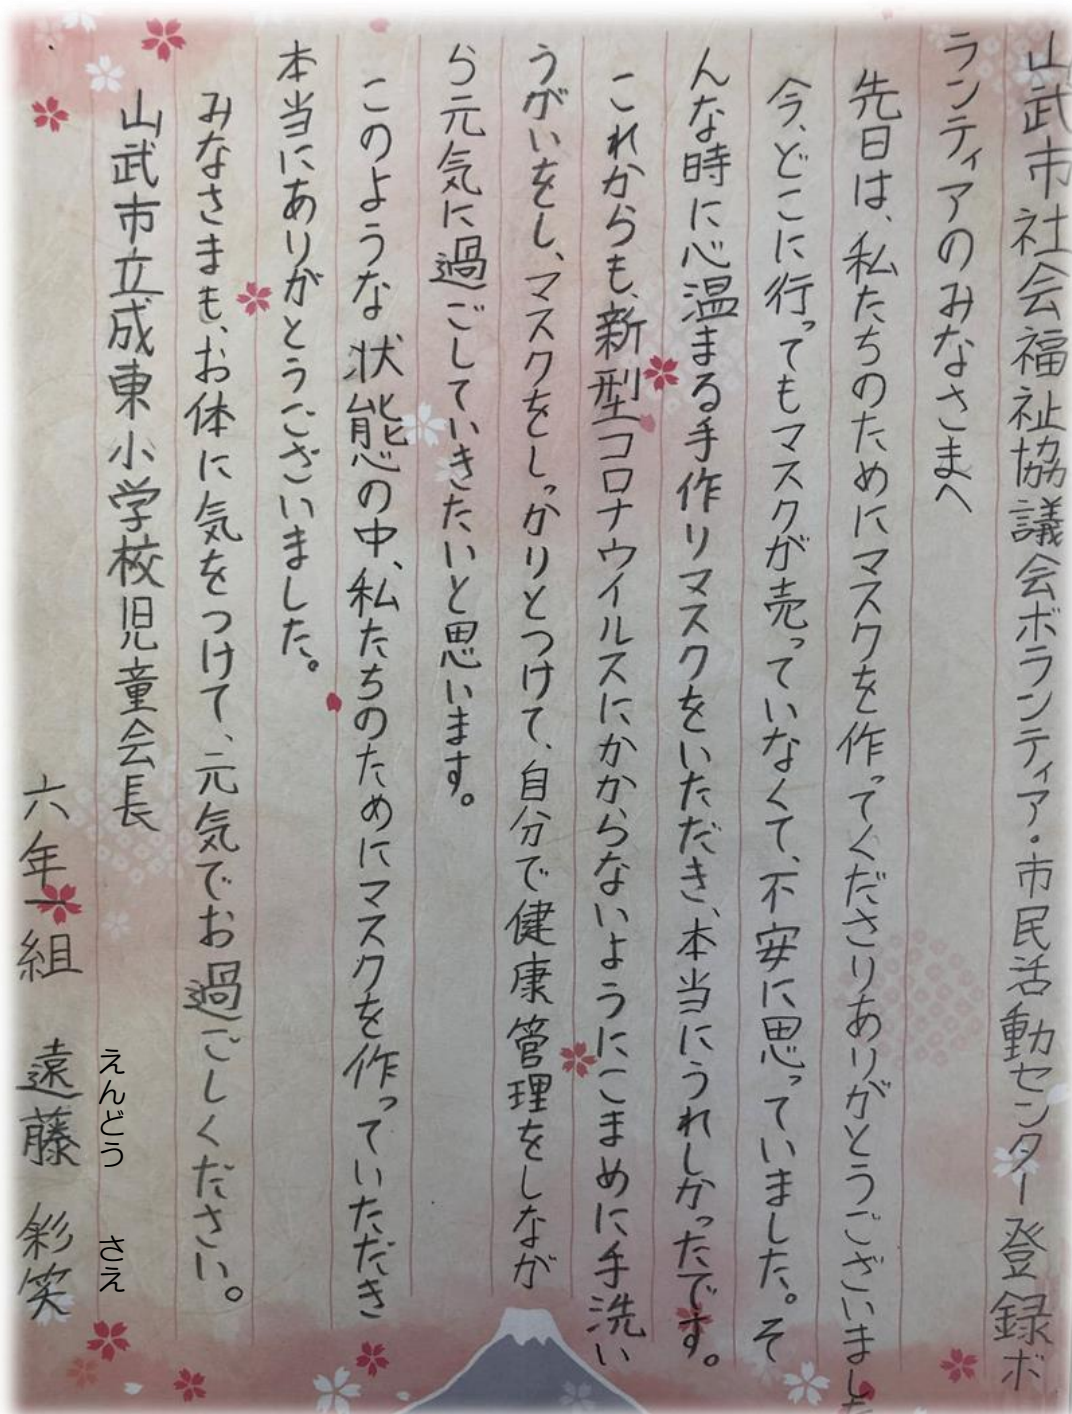 山武市社会福祉協議会ボランティア・市民活動センター登録ボ
ランティアのみなさまへ
先日は、私たちのためにマスクを作ってくださりありがとうございました
今、どこに行ってもマスクが売っていなくて、不安に思っていました。そ
んな時に心温まる手作りマスクをいただき、本当にうれしかったです。
これからも、新型コロナウイルスにかからないようにこまめに手洗い
うがいをし、マスクをしっかりとつけて、自分で健康管理をしなが
ら元気に過ごしていきたいと思います。
このような状態の中、私たちのためにマスクを作っていただき
本当にありがとうございました。
みなさまも、お体に気をつけて、元気でお過ごしください。
山武市立成東小学校児童会長
えんどう さえ
六年一組 遠藤 彩笑